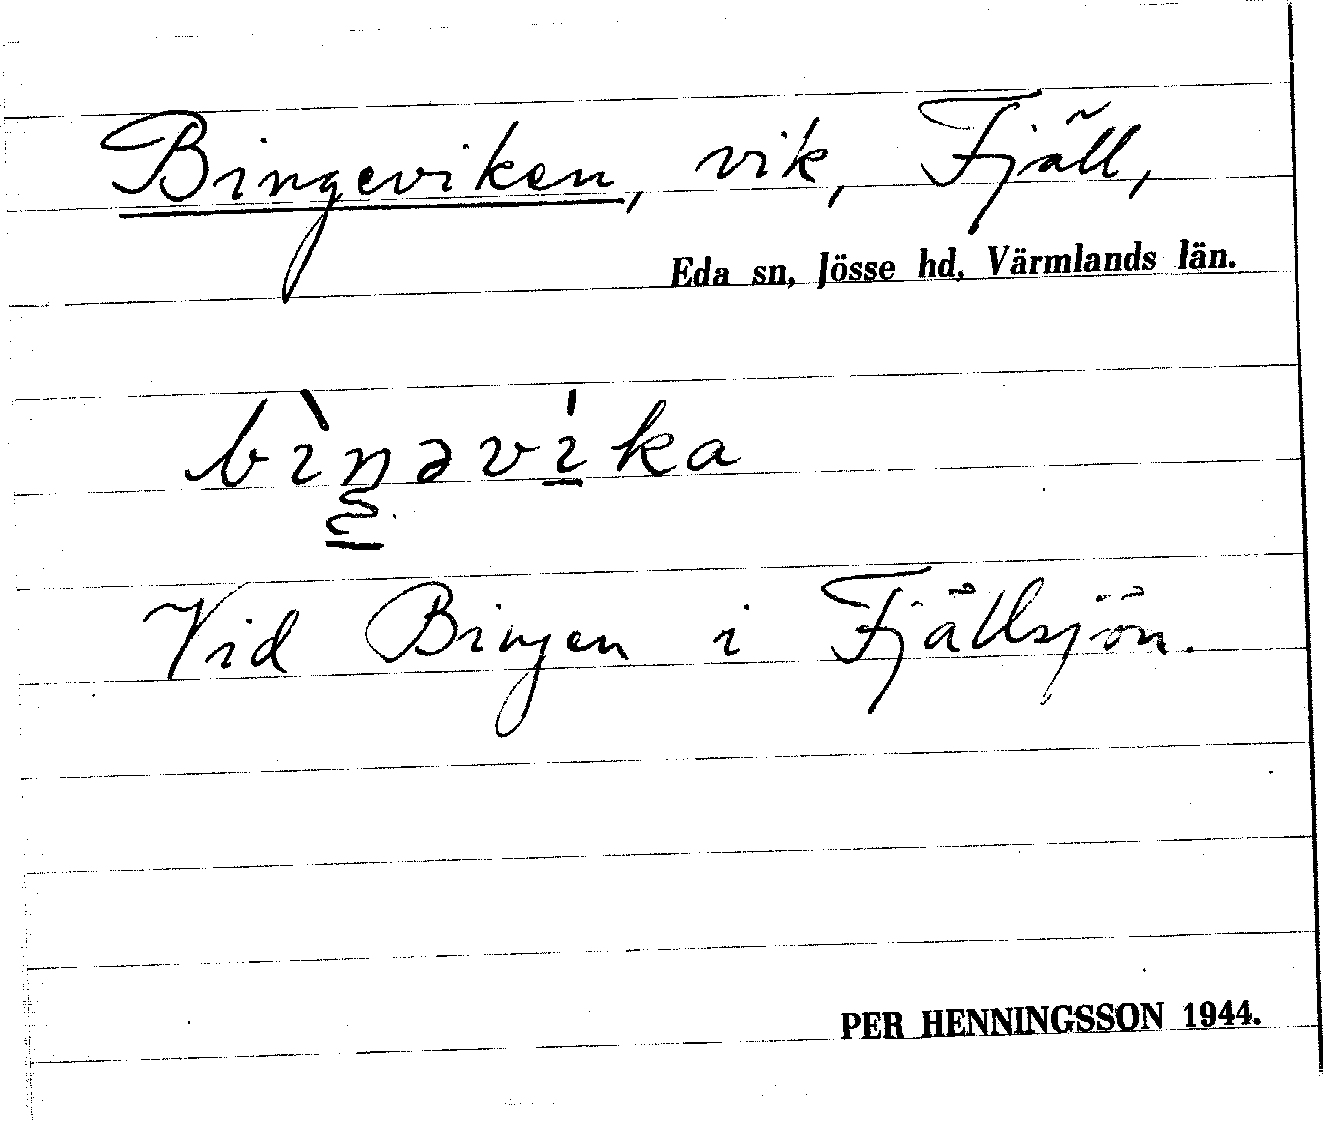 Bingeviken, vik, Fjäll,
Eda sn, Jösse hd, Värmlands län.
bìŋəvíka
Vid Bingen i Fjällsjön.
PER HENNINGSSON 1944.